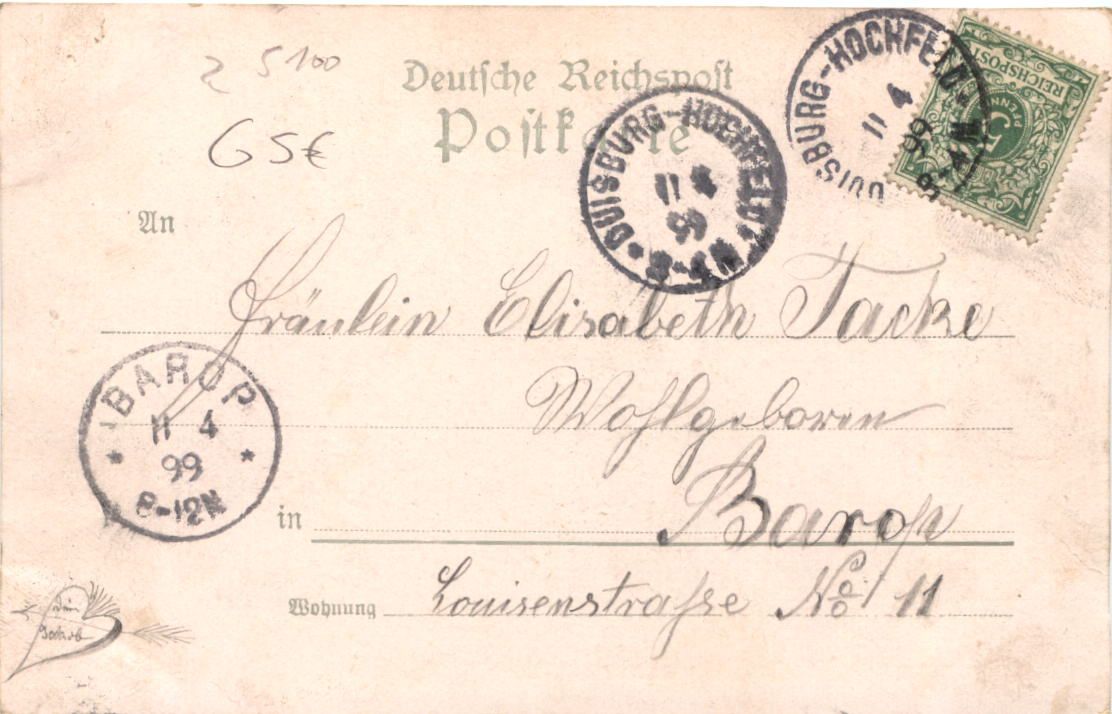 2 5100
65€
Deutsche Reichspost
Postkarte
DUISBURG-HOCHFELD
11 4
99
8-
DUISBURG-HOCHFELD
11 4
99
8-
N
REICHSPOST
5
An
Fräulein Elisabeth Tacke
Wohlgeboren
BAROP
11 4
99
8-12N
in Barop
Wohnung Louisenstraße No 11
Dein
Jakob